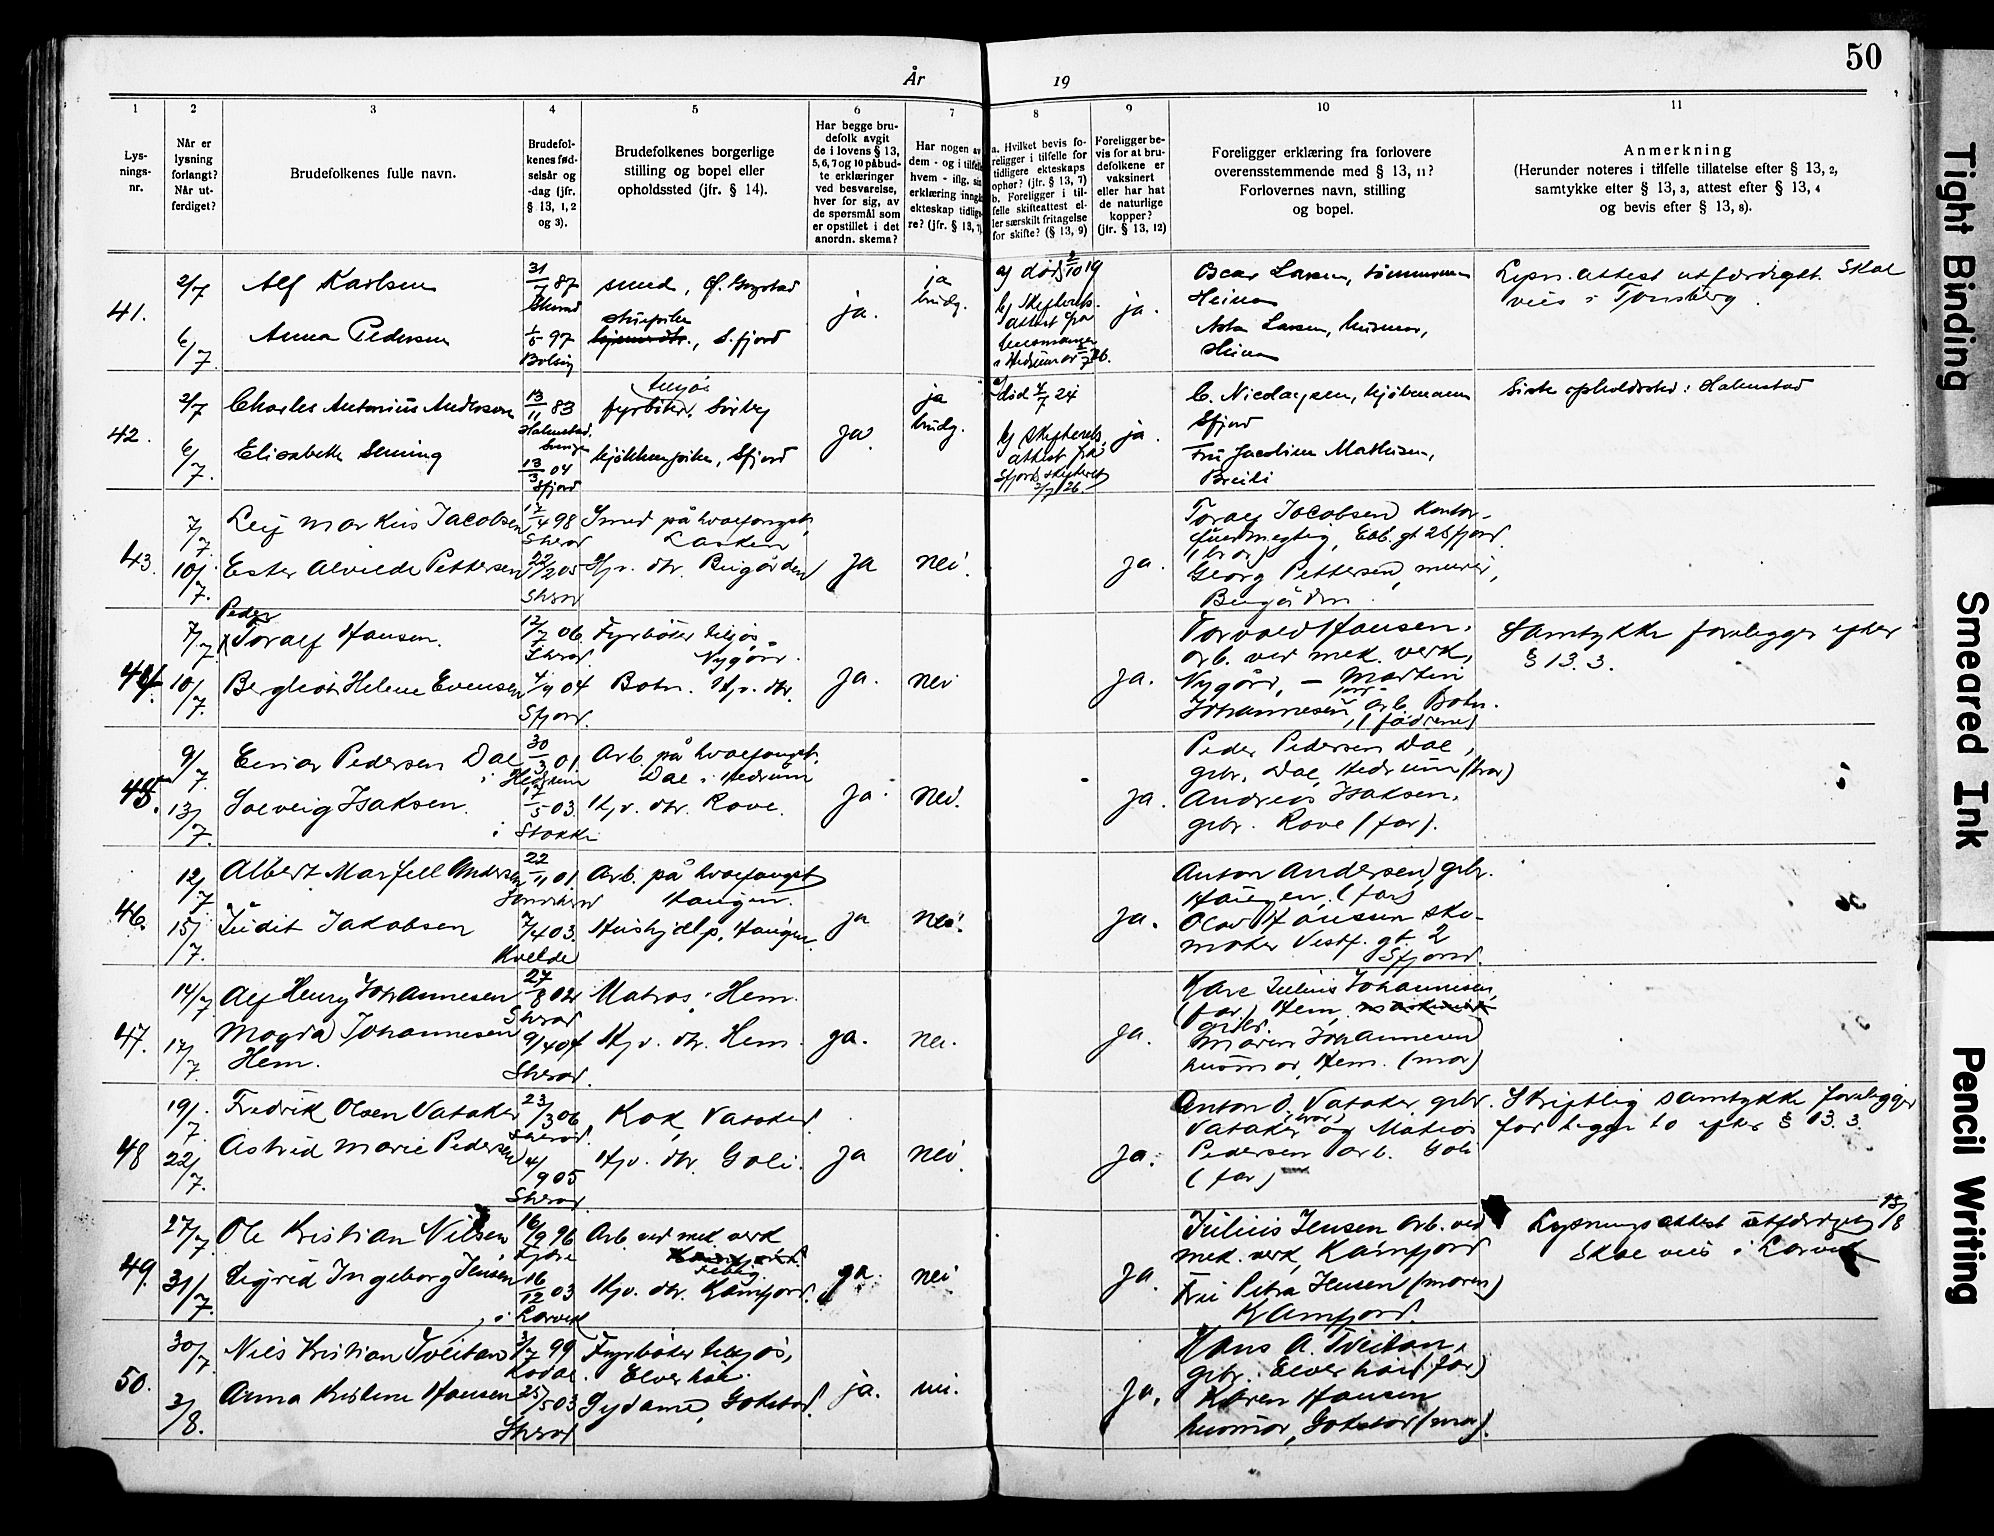 50
År 19
1 2 3 4 5 6 7 8 9 10 11
Lys-
nings-
nr.
Når er
lysning
forlangt?
Når ut-
ferdiget?
Brudefolkenes fulle navn.
Brudefol-
kenes fød-
selsår og
-dag (jfr.
§ 13, 1, 2
og 3).
Brudefolkenes borgerlige
stilling og bopel eller
opholdssted (jfr. § 14).
Har begge bru-
defolk avgit
de i lovens § 13,
5, 6, 7 og 10 påbud-
te erklæringer
ved besvarelse,
hver for sig, av
de spørsmål som
er opstillet i det
anordn. skema?
Har nogen av
dem - og i tilfelle
hvem - iflg. sin
erklæring inngå
ekteskap tidlige
re? (jfr. § 13, 7)
a. Hvilket bevis fo-
religger i tilfelle for
tidligere ekteskaps
ophør? (jfr. § 13, 7)
b. Foreligger i til-
felle skifteattest el-
ler særskilt fritagelse
for skifte? (§ 13, 9)
Foreligger be-
vis for at bru-
defolkene er
vaksinert
eller har hat
de naturlige
kopper?
(jfr. § 13, 12)
Foreligger erklæring fra forlovere
overensstemmende med § 13, 11?
Forlovernes navn, stilling
og bopel.
Anmerkning
(Herunder noteres i tilfelle tillatelse efter § 13, 2,
samtykke efter § 13, 3, attest efter § 13, 4
og bevis efter § 13, 8).
41.
2/7
6/7
Alf Karlsen
Anna Pedersen
31/7 87
1/5 97
smed,
S.fjord
ja.
ja
brudg.
a) død 2/10 19
b) Skifterets-
attest fra
lensmannen
i Hedrum av
ja.
Oscar Larsen, tømmermann
Heimen
Asta Larsen, husmor,
Heimen
Lysn. attest utferdiget. Skal
vies i Tønsberg.
42.
2/7
6/7
Charles Antonius Andersson
Elisabeth Senning
13/11 83
Halmstad,
Sverige
13/3 04
Sfjord
tilsjøs
fyrbøter, Sörby
kjøkkenpike, Sfjord
ja
ja
brudg.
a) død 4/7 24
b) skifterets
attest fra
Sfjords skifterett
2/7 26.
ja.
C. Nicolaysen, kjøbmann
Sfjord
Fru Jacobine Mathisen,
Breili
Siste opholdssted: Halmstad
43.
7/7
10/7.
Leif Markus Jacobsen
Ester Alvilde Pettersen
17/4 98
Sherad
22/2 05
Sherad
Smed på hvalfangst,
Hjv. dtr. Bugården
ja
nei.
ja.
Toralf Jacobsen Kontor-
fuldmegtig,
(bror)
Georg Pettersen, murer,
Bugården.
44.
7/7.
10/7.
Peder
Toralf Hansen.
Bergliot Helene Evensen
12/7 06.
Sherad.
4/9 04
Sfjord.
Fyrbøter tilsjøs
Nygård.
Botn. Hjv. dtr.
ja.
nei
ja.
Torvald Hansen,
arb. ved mek. verk,
Nygård, – Martin
Johannesen, arb. Botn.
(fødrene)
Samtykke foreligger efter
§ 13. 3.
45.
9/7.
13/7.
Einar Pedersen Dal
Solveig Isaksen.
30/3 01
i Hedrum
17/5 03
i Stokke
Arb. på hvalfangst.
Dal i Hedrum
Hjv. dtr. Rove.
ja.
nei.
ja.
Peder Pedersen Dal,
gbr. Dal, Hedrum (bror)
Andreas Isaksen,
gbr. Rove (far).
46.
12/7
15/7.
Albert Marfell Andersen
Judit Jakobsen
22/11 01
9/4 03.
Kvelde
Arb. på hvalfangst
Haugen.
Hushjelp, Haugen.
ja
nei.
ja.
Anton Andersen, gbr.
Haugen. (far)
Olav Hanssen sko-
maker Vestf. gt. 2
Sfjord.
47.
14/7
17/7.
Alf Henry Johannesen
Magda Johannesen
Hem.
27/8 02
Sherad
9/4 04
Sherad.
Matros, Hem.
Hjv. dtr. Hem.
ja.
nei.
ja.
Kare Julius Johannesen,
(far) Hem,
gbr.
Maren Johannesen
husmor, Hem. (mor)
48
19/7.
22/7.
Fredrik Olsen Vataker
Astrid Marie Pedersen
23/3 06
Sherad.
4/9 05
Sherad
Kok, Vataker.
Hjv. dtr. Goli.
ja
nei.
ja.
Anton O. Vataker gbr.
Vataker (bror) og Matias
Pedersen arb. Goli
(far)
Skriftlig samtykke foreligger
for begge to efter § 13. 3.
49.
27/7.
31/7.
Ole Kristian Nilsen
Sigrid Ingeborg Jensen
16/9 96
16/12 03
i Larvik
Arb. ved mek. verk
Hjv. dtr. Kamfjord.
ja
nei
ja.
Julius Jensen arb. ved
mek. verk, Kamfjord
Fru Petra Jensen (moren)
Kamfjord.
Lysningsattest utferdiget 13/8
Skal vies i Larvik
50.
30/7
3/8.
Nils Kristian Tveitan
Anna Kristine Hansen
3/7 99
25/5 03
Sherad
Fyrbøter tilsjøs,
Elverhøi.
Sydame, Gokstad.
ja.
nei.
ja.
Hans A. Tveitan,
gbr. Elverhøi (far)
Karen Hansen
husmor, Gokstad (mor).
Tight Binding
Smeared Ink
Pencil Writing